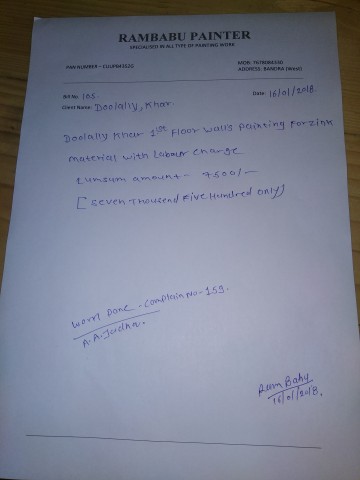 RAMBABU PAINTER
SPECIALISED IN ALL TYPE OF PAINTING WORK
PAN NUMBER - CUUPM4322G
MOB: 7678084330
ADDRESS: BANDRA (West)
Bill No. 105
Date: 16/01/2018
Client Name: Doolally, Khar
Doolally Khar 1st Floor walls Painting For zink
material with Labour Charge
Lumsum amount - 7500/-
[Seven Thousand Five Hundred Only]
Work Done - Complain No - 159.
A.A.
Ram Babu
16/01/2018.